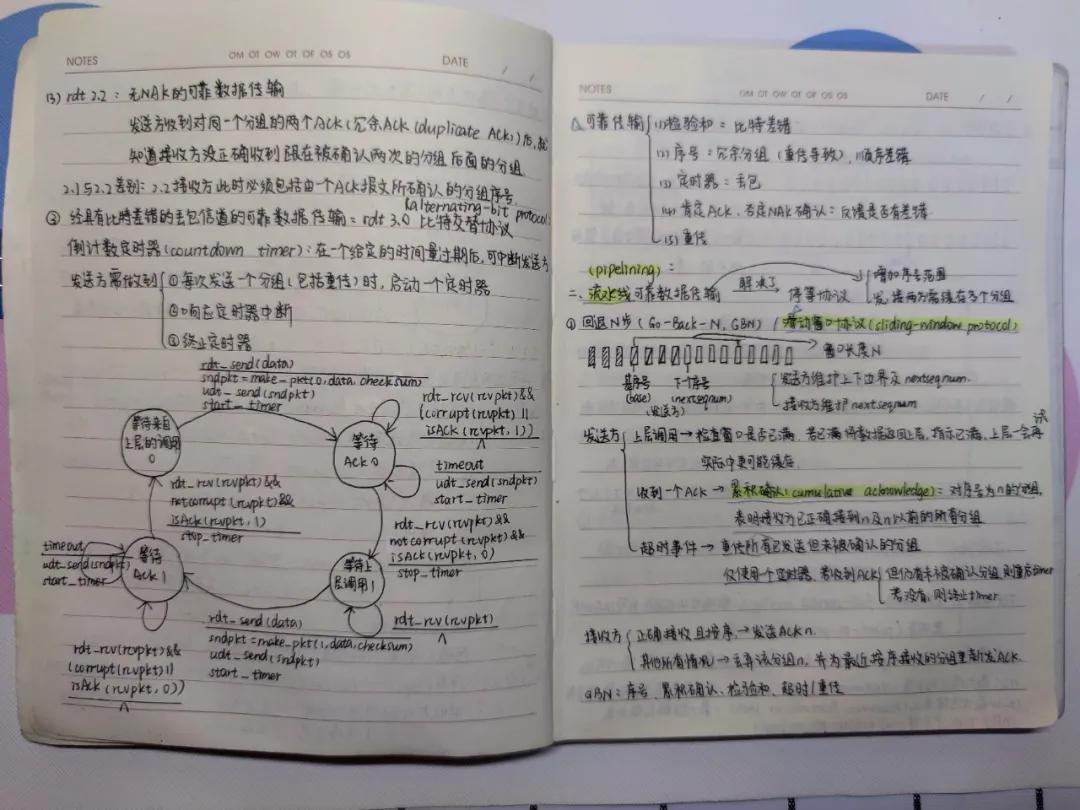 NOTES
OM OT OW OT OF OS OS
DATE / /
(3) rdt 2.2：无NAK的可靠数据传输
发送方收到对同一个分组的两个ACK(冗余ACK(duplicate ACK))后,就
知道接收方没正确收到跟在被确认两次的分组后面的分组
2.1与2.2差别：2.2接收方此时必须包括由一个ACK报文所确认的分组序号
(alternating-bit protocol)
③ 经具有比特差错的丢包信道的可靠数据传输：rdt 3.0 比特交替协议
倒计数定时器(countdown timer)：在一个给定的时间量过期后,可中断发送方
发送方需做到
①每次发送一个分组(包括重传)时,启动一个定时器
②响应定时器中断
③终止定时器
rdt_send(data)
sndpkt=make_pkt(0,data,checksum)
udt_send(sndpkt)
start_timer
rdt_rcv(rcvpkt)&&
(corrupt(rcvpkt)||
isACK(rcvpkt,1))
Λ
等待来自
上层的调用
0
等待
ACK 0
timeout
udt_send(sndpkt)
start_timer
rdt_rcv(rcvpkt)&&
notcorrupt(rcvpkt)&&
isAck(rcvpkt,1)
stop_timer
rdt_rcv(rcvpkt)&&
notcorrupt(rcvpkt)&&
isACK(rcvpkt,0)
stop_timer
timeout
udt_send(sndpkt)
start_timer
等待
Ack 1
等待上
层调用1
rdt_send(data)
sndpkt=make_pkt(1,data,checksum)
udt_send(sndpkt)
start_timer
rdt_rcv(rcvpkt)
Λ
rdt_rcv(rcvpkt)&&
(corrupt(rcvpkt)||
isAck(rcvpkt,0))
Λ
NOTES
OM OT OW OT OF OS OS
DATE / /
△可靠传输
(1)检验和：比特差错
(2)序号：冗余分组(重传导致),顺序差错
(3)定时器：丢包
(4)肯定ACK、否定NAK确认：反馈是否有差错
(5)重传
(pipelining)：
二、流水线可靠数据传输 解决了 停等协议
增加序号范围
发、接两方需缓存多个分组
① 回退N步(Go-Back-N, GBN) / 滑动窗口协议(sliding-window protocol)
窗口长度N
基序号
(base)
下一个序号
(nextseqnum)
(发送方)
发送方维护上下边界及nextseqnum.
接收方维护nextseqnum
发送方
上层调用→检查窗口是否已满,若已满将数据返回上层,指示已满,上层一会再试
实际中更可能缓存.
收到一个ACK→累积确认(cumulative acknowledge)：对序号为n的分组,
表明接收方已正确接到n及n以前的所有分组
超时事件→重传所有已发送但未被确认的分组
仅使用一个定时器,若收到ACK
但仍有未被确认分组,则重启timer
若没有,则终止timer
接收方
正确接收且按序,→发送ACK n.
其他所有情况→丢弃该分组n,并为最近按序接收的分组重新发ACK.
GBN：序号、累积确认、检验和、超时/重传